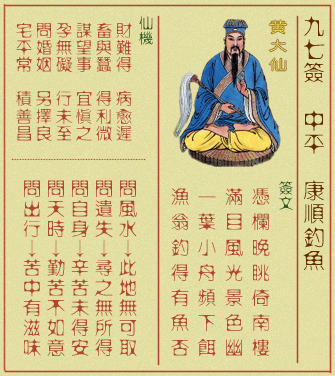 九七簽 中平 康順釣魚
黃大仙
簽文
憑欄晚眺倚南樓
滿目風光景色幽
一葉小舟頻下餌
漁翁釣得有魚否
仙機
財難得 病愈遲
畜與蠶 得利微
謀望事 宜慎之
孕無礙 行未至
問婚姻 另擇良
宅平常 積善昌
問風水→此地無可取
問遺失→尋之無所得
問自身→辛苦未得安
問天時→勤苦不如意
問出行→苦中有滋味